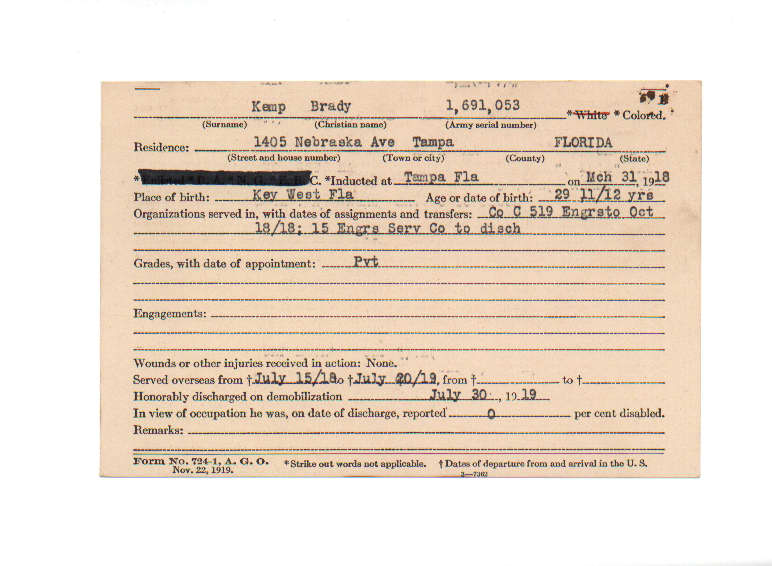 Kemp Brady 1,691,053 *White * Colored.
(Surname) (Christian name) (Army serial number)
Residence: 1405 Nebraska Ave Tampa FLORIDA
(Street and house number) (Town or city) (County) (State)
* C. *Inducted at Tampa Fla on Mch 31, 1918
Place of birth: Key West Fla Age or date of birth: 29 11/12 yrs
Organizations served in, with dates of assignments and transfers: Co C 519 Engrsto Oct
18/18; 15 Engrs Serv Co to disch
Grades, with date of appointment: Pvt
Engagements:
Wounds or other injuries received in action: None.
Served overseas from † July 15/18 to † July 20/19, from † to †
Honorably discharged on demobilization July 30, 1919
In view of occupation he was, on date of discharge, reported 0 per cent disabled.
Remarks:
Form No. 724-1, A. G. O. *Strike out words not applicable. † Dates of departure from and arrival in the U. S.
Nov. 22, 1919. 3—7362